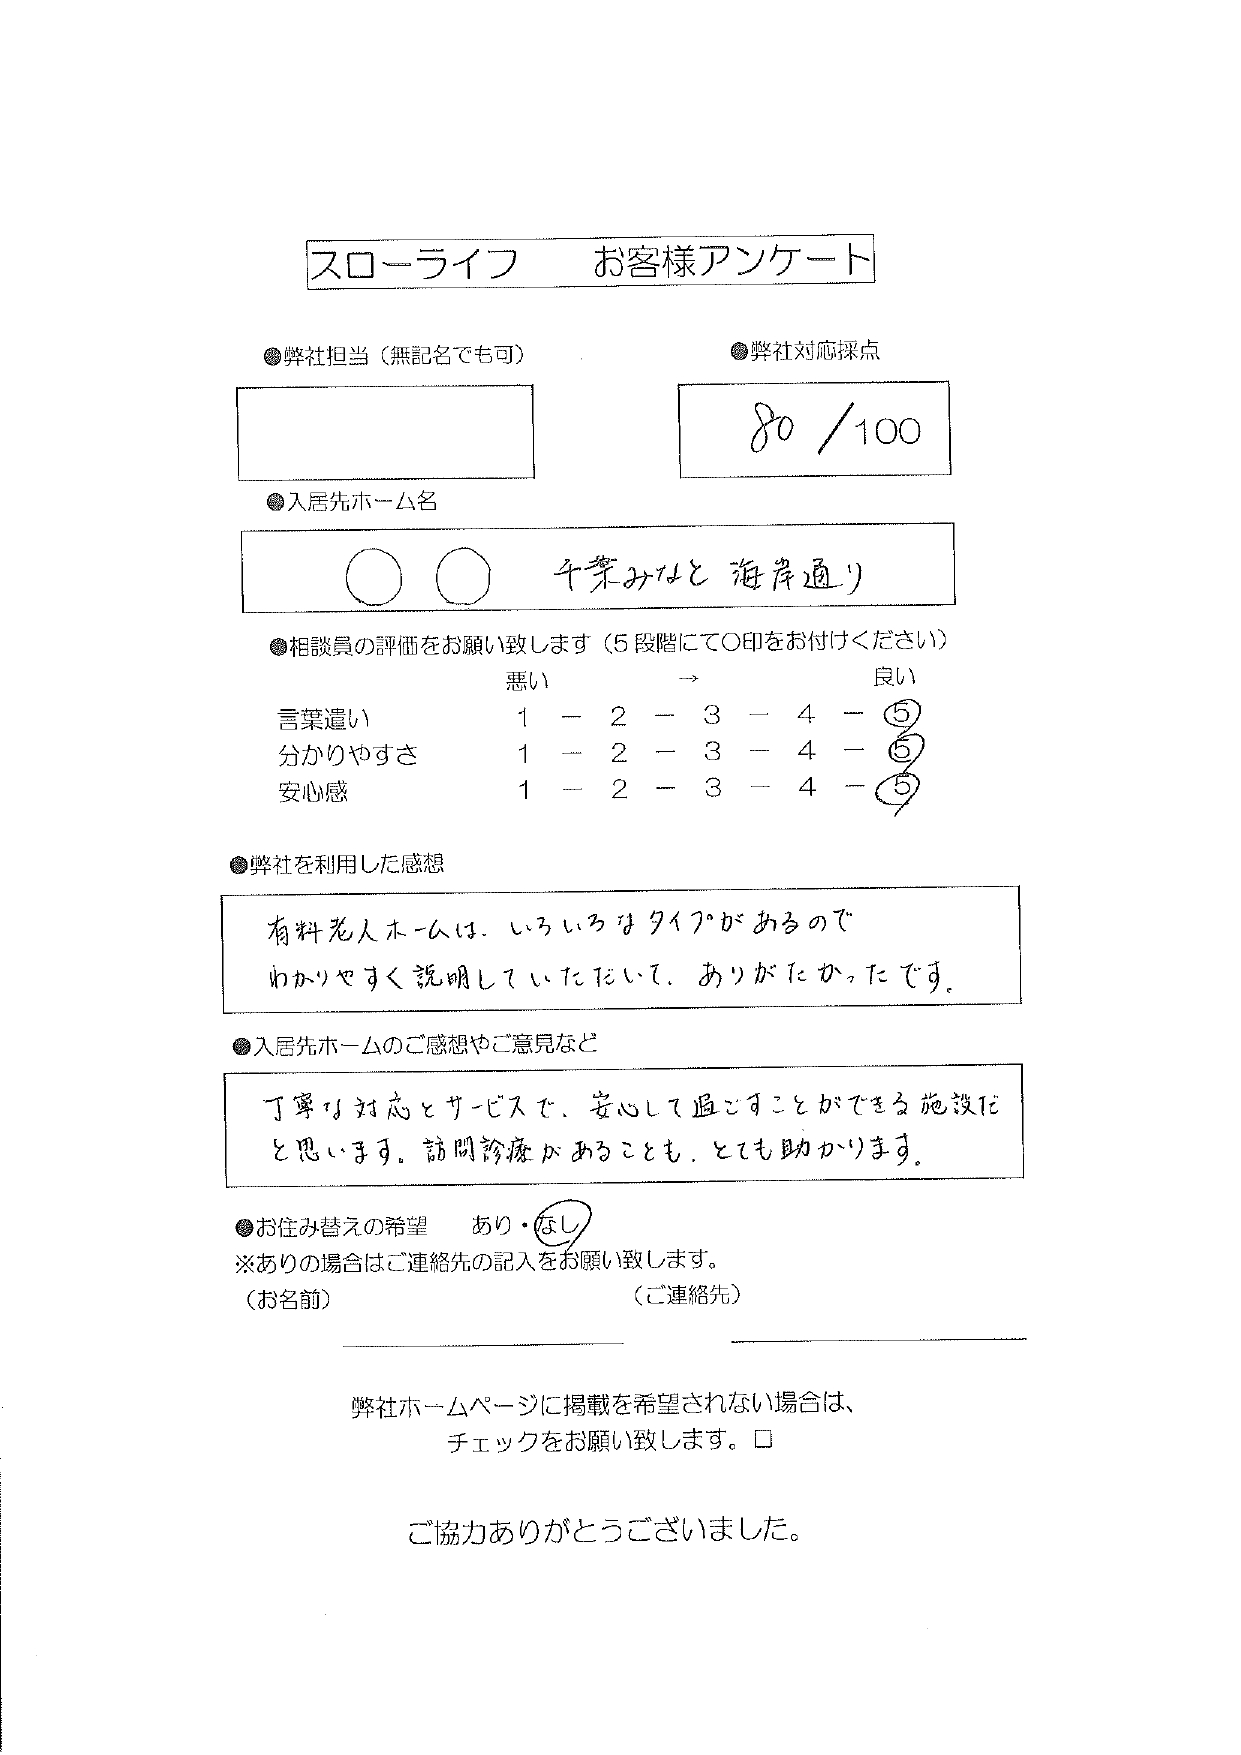 スローライフ　　お客様アンケート
●弊社担当（無記名でも可）　●弊社対応採点
80 /100
●入居先ホーム名
○ ○ 千葉みなと 海岸通り
●相談員の評価をお願い致します（5段階にて○印をお付けください）
悪い → 良い
言葉遣い 1 － 2 － 3 － 4 － 5
分かりやすさ 1 － 2 － 3 － 4 － 5
安心感 1 － 2 － 3 － 4 － 5
●弊社を利用した感想
有料老人ホームは、いろいろなタイプがあるので
わかりやすく説明していただいて、ありがたかったです。
●入居先ホームのご感想やご意見など
丁寧な対応とサービスで、安心して過ごすことができる施設だ
と思います。訪問診療があることも、とても助かります。
●お住み替えの希望　　あり・なし
※ありの場合はご連絡先の記入をお願い致します。
（お名前）　（ご連絡先）
弊社ホームページに掲載を希望されない場合は、
チェックをお願い致します。□
ご協力ありがとうございました。